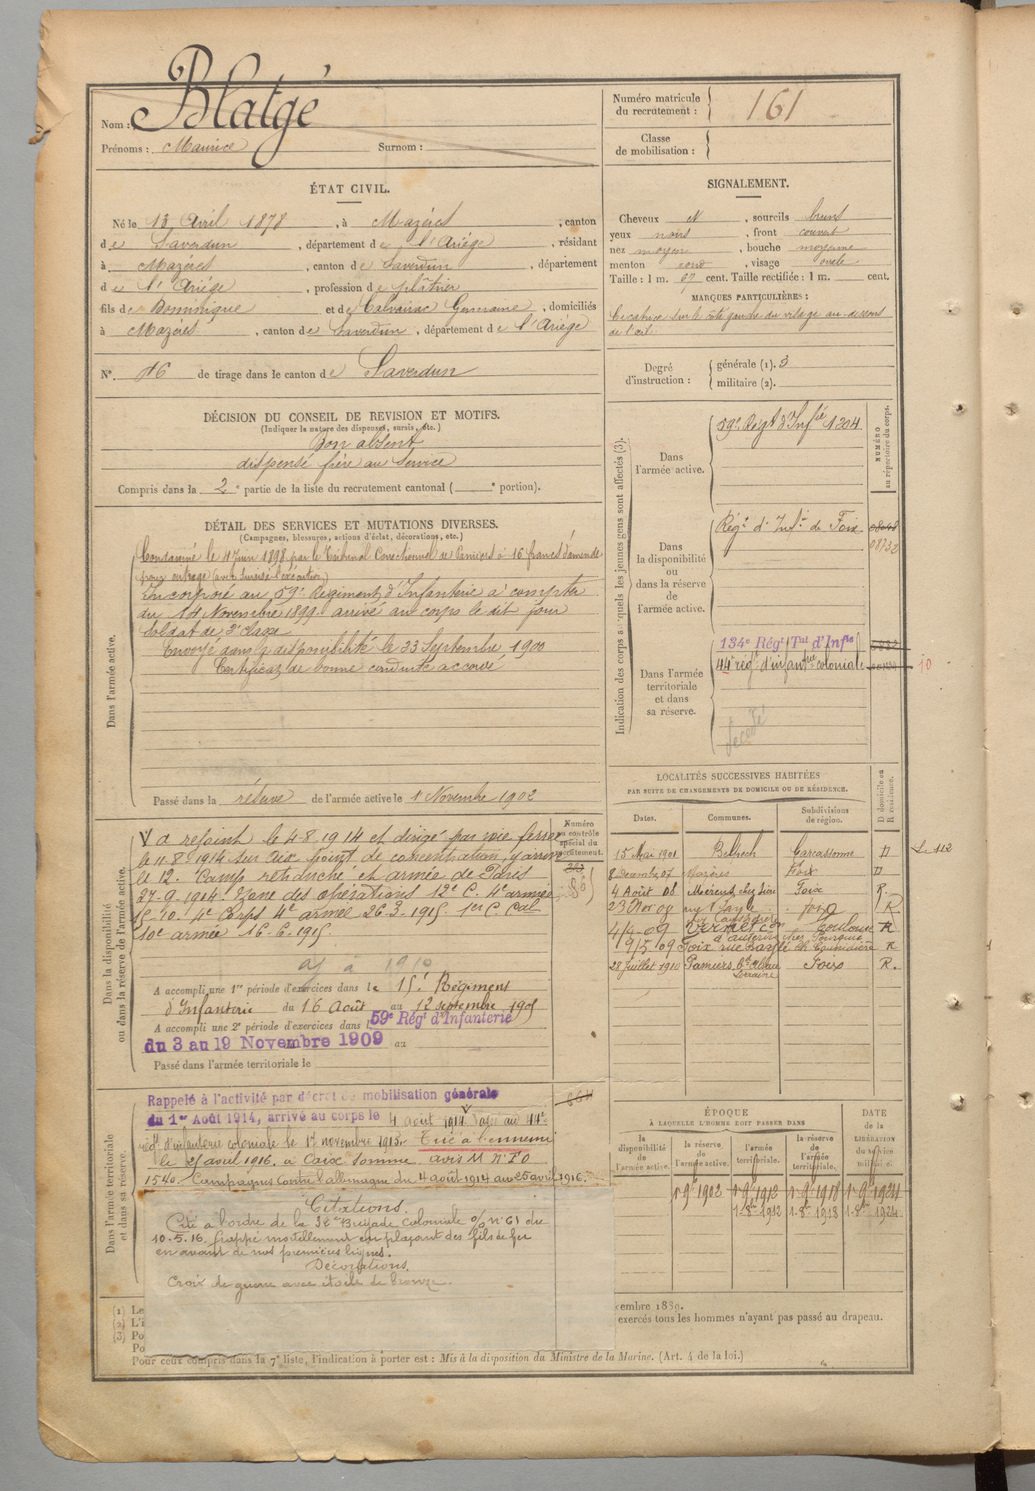 Nom : Blatgé
Prénoms : Maurice Surnom :
Numéro matricule du recrutement : 161
Classe de mobilisation :
ÉTAT CIVIL.
Né le 13 Avril 1878, à Mazères, canton
de Saverdun, département de l'Ariège, résidant
à Mazères, canton de Saverdun, département
de l'Ariège, profession de plâtrier
fils de Dominique et de Calvairac Germaine, domiciliés
à Mazères, canton de Saverdun, département de l'Ariège
N° 16 de tirage dans le canton de Saverdun
SIGNALEMENT.
Cheveux N, sourcils bruns
yeux noirs, front couvert
nez moyen, bouche moyenne
menton rond, visage ovale
Taille : 1 m. 67 cent. Taille rectifiée : 1 m. cent.
MARQUES PARTICULIÈRES :
Cicatrice sur le côté gauche du visage au-dessous
de l'œil
Degré d'instruction : générale (1). 3
militaire (2).
DÉCISION DU CONSEIL DE REVISION ET MOTIFS.
(Indiquer la nature des dispenses, sursis, etc.)
Bon absent
dispensé frère au service
Compris dans la 2e partie de la liste du recrutement cantonal ( e portion).
DÉTAIL DES SERVICES ET MUTATIONS DIVERSES.
(Campagnes, blessures, actions d'éclat, décorations, etc.)
Dans l'armée active.
Condamné le 4 Juin 1898 par le Tribunal Correctionnel de Pamiers à 16 francs d'amende
pour outrage (avec sursis à l'exécution)
Incorporé au 59e Régiment d'Infanterie à compter
du 14 Novembre 1899 arrivé au corps le dit jour
soldat de 2e classe
Envoyé dans la disponibilité le 23 Septembre 1900
Certificat de bonne conduite accordé
Passé dans la réserve de l'armée active le 1 Novembre 1902
Indication des corps auxquels les jeunes gens sont affectés (3).
NUMÉRO au répertoire du corps.
Dans l'armée active.
59e Régt d'Infie 1304
Dans la disponibilité ou dans la réserve de l'armée active.
Régt d'Infie de Foix
08732
Dans l'armée territoriale et dans sa réserve.
134e Régt Tal d'Infie
44e régt d'infantrie coloniale
10
décédé
LOCALITÉS SUCCESSIVES HABITÉES
PAR SUITE DE CHANGEMENTS DE DOMICILE OU DE RÉSIDENCE.
Dates. Communes. Subdivisions de région. D domicile ou R résidence.
15 Mai 1901 Belpech Carcassonne D
8 Décembre 07 Mazères Foix D
4 Août 08 Foix R
23 Nov 09 Foix R
4/4-09 Vernet Toulouse R
19/5/09 Foix R
28 Juillet 1910 Pamiers Foix R.
Dans la disponibilité ou dans la réserve de l'armée active.
Numéro au contrôle spécial du recrutement.
A rejoint le 4-8-1914 et dirigé par voie ferrée
le 11-8-1914 sur Aix point de concentration, y arrive
le 12. Camp retranché et armée de Paris
27-9-1914 Zone des opérations 12e C. 4e armée
15-10- 1e Corps 4e armée 26-3-1915 1er C. Cal
10e armée 16-6-1915
A accompli une 1re période d'exercices dans le 15e Régiment
d'Infanterie du 16 Août au 12 septembre 1905
A accompli une 2e période d'exercices dans le 59e Régt d'Infanterie
du 3 au 19 Novembre 1909 au
Passé dans l'armée territoriale le
Dans l'armée territoriale et dans sa réserve.
Rappelé à l'activité par décret de mobilisation générale
du 1er Août 1914, arrivé au corps le 4 août 1914 Passé au 44e
régt d'infanterie coloniale le 1er novembre 1915. Tué à l'ennemi
le 25 avril 1916 à Caix Somme avis M n° FO
1540. Campagnes contre l'allemagne du 4 août 1914 au 25 avril 1916.
Citations.
Cité à l'ordre de la 32e Brigade Coloniale O/ N° 61 du
10-5-16. frappé mortellement en plaçant des fils de fer
en avant de nos premières lignes.
Décorations.
Croix de guerre avec étoile de bronze.
ÉPOQUE
À LAQUELLE L'HOMME DOIT PASSER DANS
la disponibilité de l'armée active. la réserve de l'armée active. l'armée territoriale. la réserve de l'armée territoriale. DATE de la LIBÉRATION du service militaire.
1-9bre 1902 1-9bre 1912 1-9bre 1918 1-9bre 1924
1-8bre 1912 1-8bre 1918 1-8bre 1924
(1) Le
(2) L'i
(3) Po
Po
cembre 1889.
exercés tous les hommes n'ayant pas passé au drapeau.
Pour ceux compris dans la 7e liste, l'indication à porter est : Mis à la disposition du Ministre de la Marine. (Art. 4 de la loi.)